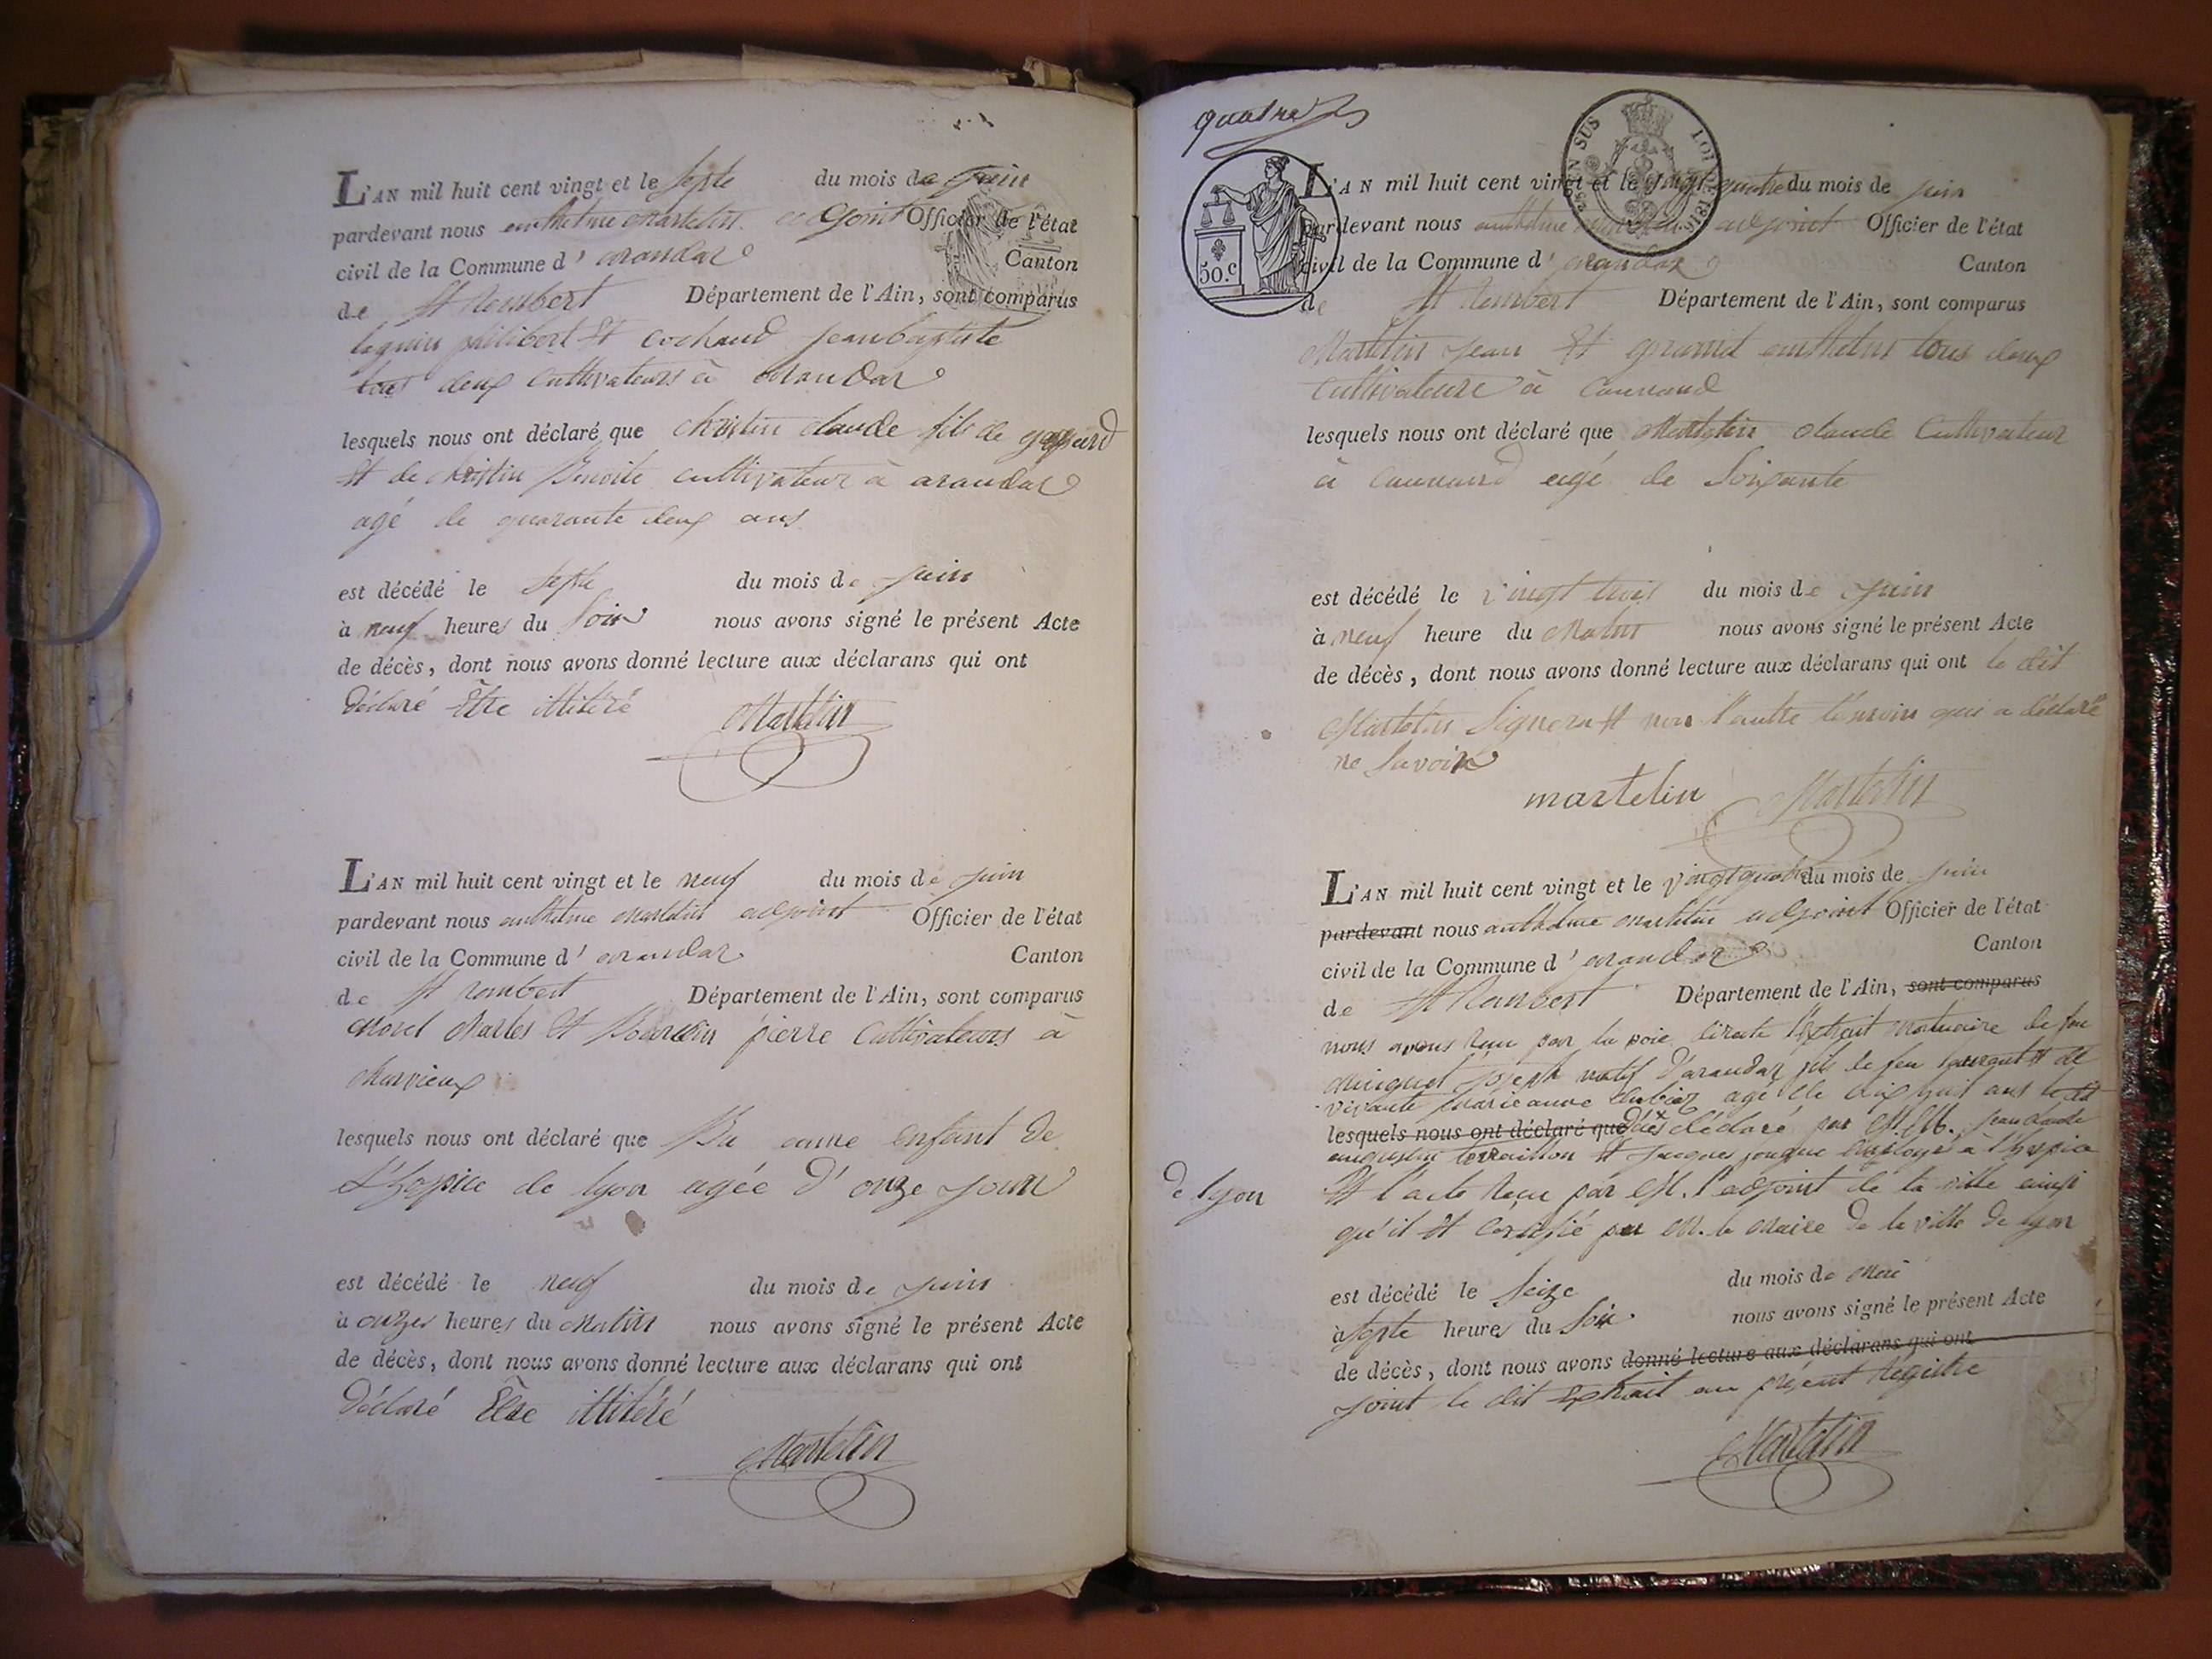 L'AN mil huit cent vingt et le septe du mois de juin
pardevant nous anthelme Martelin adjoint Officier de l'état
civil de la Commune d' arandas Canton
de St Rembert Département de l'Ain, sont comparus
philibert et cochaud jean baptiste
tous deux cultivateurs à arandas
lesquels nous ont déclaré que christin claude fils de gaspard
et de christin Benoite cultivateur à arandas
agé de quarante deux ans
est décédé le septe du mois de juin
à neuf heures du soir nous avons signé le présent Acte
de décès, dont nous avons donné lecture aux déclarans qui ont
déclaré être illitéré Martelin
L'AN mil huit cent vingt et le neuf du mois de juin
pardevant nous anthelme Martelin adjoint Officier de l'état
civil de la Commune d' arandas Canton
de St rembert Département de l'Ain, sont comparus
Morel charles et pierre Cultivateurs à
charvieux
lesquels nous ont déclaré que anne enfant de
L'hospice de lyon agée d'onze jours
est décédé le neuf du mois de juin
à onzes heures du Matin nous avons signé le présent Acte
de décès, dont nous avons donné lecture aux déclarans qui ont
déclaré Être illitéré
Martelin
quatre
EN SUS LOI 1816
50.c
L'AN mil huit cent vingt et le vingt quatre du mois de juin
pardevant nous anthelme Martelin adjoint Officier de l'état
civil de la Commune d' arandas Canton
de St Rembert Département de l'Ain, sont comparus
Martelin jean et anthelme tous deux
cultivateurs à
lesquels nous ont déclaré que Martelin claude Cultivateur
à agé de soixante
est décédé le vingt trois du mois de juin
à neuf heure du Matin nous avons signé le présent Acte
de décès, dont nous avons donné lecture aux déclarans qui ont le dit
Martelin signera et non l'autre témoin qui a déclaré
ne savoir
martelin Martelin
L'AN mil huit cent vingt et le vingt quatre du mois de juin
pardevant nous anthelme Martelin adjoint Officier de l'état
civil de la Commune d' arandas Canton
de St Rambert Département de l'Ain, sont comparus
nous avons reçu par la voie directe l'extrait mortuaire de feu
joseph natif d'arandas fils de feu laurent et de
vivante marieanne agé de dix huit ans le dit
lesquels nous ont déclaré que décès déclaré par M.M. jean claude
augustin et jacques employé à l'hospice
de lyon Et l'acte reçu par M. l'adjoint de la ville ainsi
qu'il est certifié par M. le Maire de la ville de lyon
est décédé le seize du mois de Mai
à septe heures du soir nous avons signé le présent Acte
de décès, dont nous avons donné lecture aux déclarans qui ont
joint le dit extrait au présent régistre
Martelin